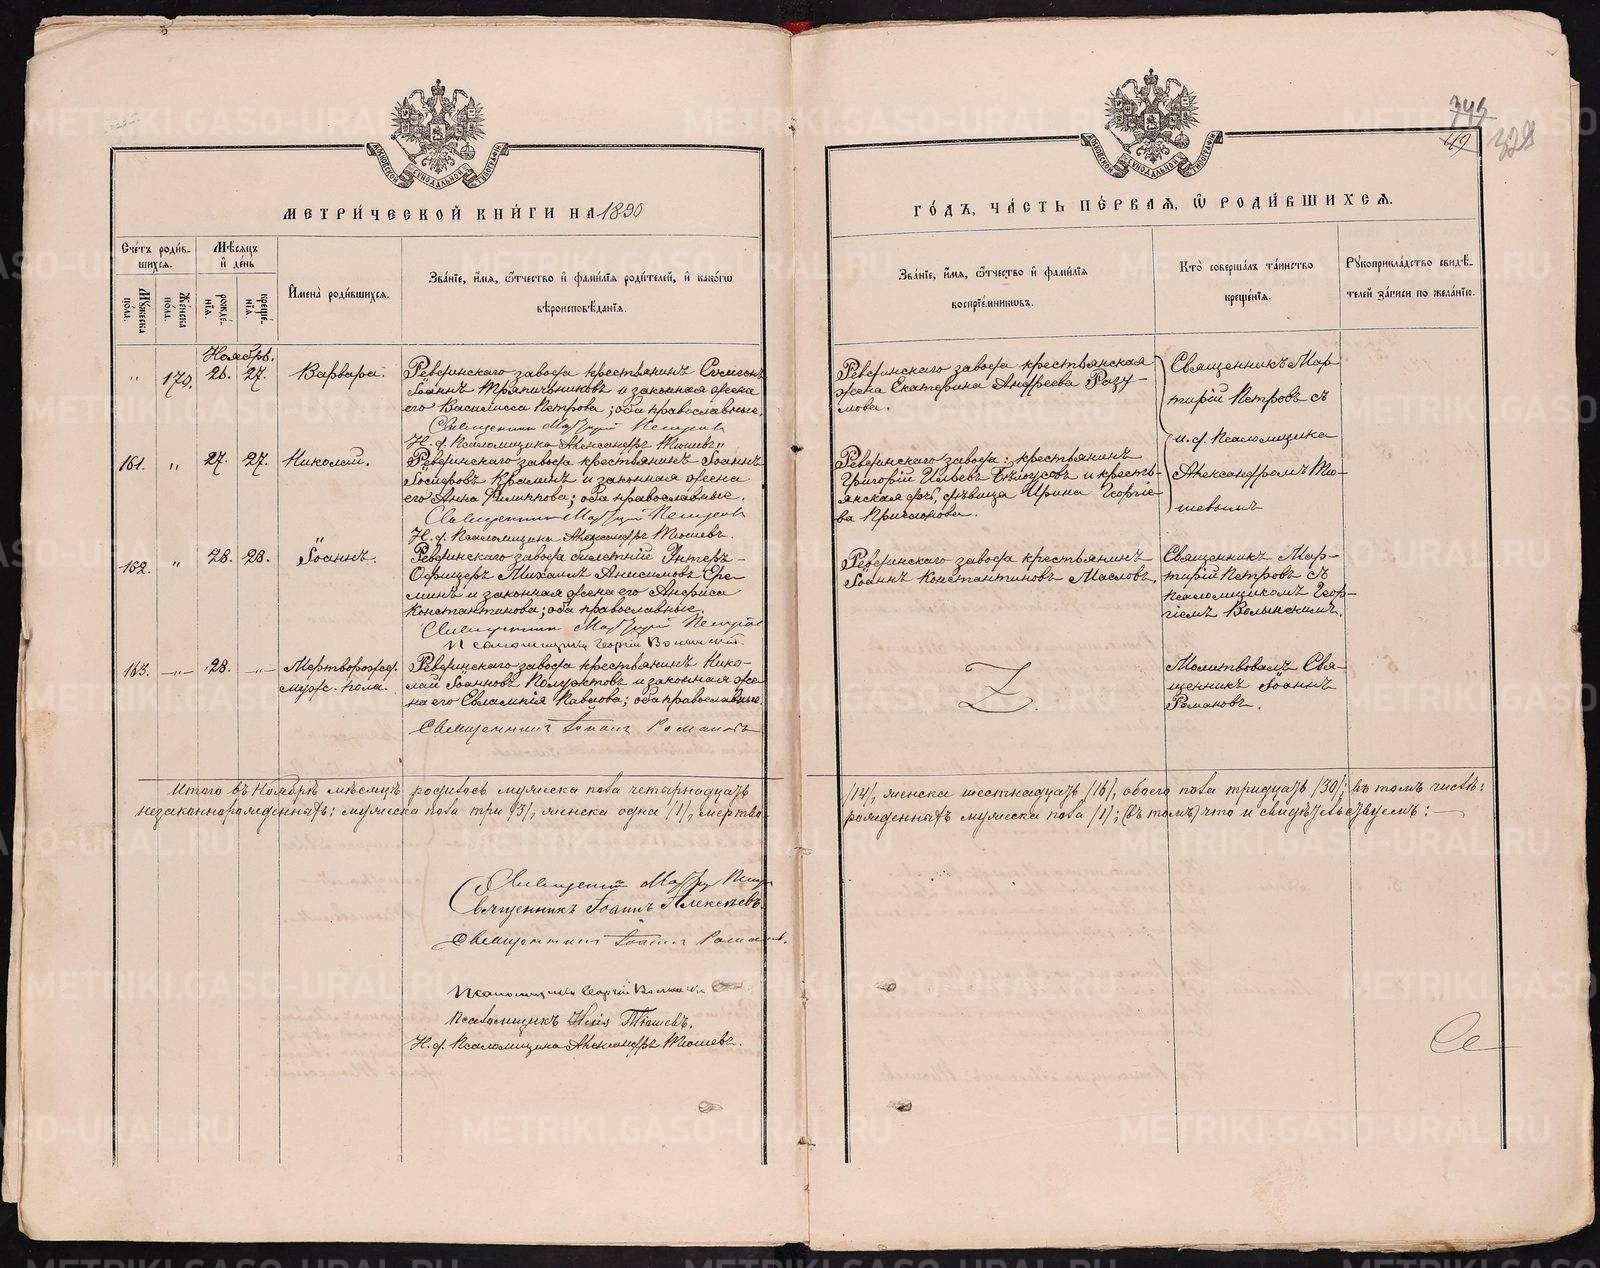 МЕТРИ́ЧЕСКОЙ КНИ́ГИ НА 1890
Сче́тъ роди́в-
шихсѧ.
Мѣ́сѧцъ
и҆ де́нь
Мꙋ́жеска
по́ла.
Же́нска
по́ла.
рожде́-
нїѧ.
креще́-
нїѧ.
И҆мена̀ роди́вшихсѧ.
Зва́нїе, и҆́мѧ, ѻ҆́тчество и҆ фами́лїѧ роди́телей, и҆ како́гѡ
вѣроисповѣ́данїѧ.
Ноябрь.
" 170. 26. 27. Варвара.
Ревдинскаго завода крестьянинъ Сѵмеонъ
Іоаннъ Тряпичниковъ и законная жена
его Василиса Петрова; оба православные.
Священникъ Мартирій Петровъ
И. д. Псаломщика Александръ Тюшевъ
161. " 27. 27. Николай.
Ревдинскаго завода крестьянинъ Іоаннъ
Іосифовъ и законная жена
его Анна Филиппова; оба православные.
Священникъ Мартирій Петровъ
И. д. Псаломщика Александръ Тюшевъ.
162. " 28. 28. Іоаннъ.
Ревдинскаго завода Унтеръ-
Офицеръ Михаилъ Анисимовъ Ере-
минъ и законная жена его Анфиса
Константинова; оба православные.
Священникъ Мартирій Петровъ
Псаломщикъ Георгій Волынскій.
163. —"— 28. —"— Мертворожд.
муж. пола.
Ревдинскаго завода крестьянинъ Нико-
лай Іоанновъ Полуектовъ и законная же-
на его Евлампія Павлова; оба православные.
Священникъ Іоаннъ Романовъ
Итого въ Ноябрѣ мѣсяцѣ родилось мужеска пола четырнадцать
незаконнорожденныхъ: мужеска пола три /3/, женска одна /1/, мертво-
Священникъ Мартирій Петровъ
Священникъ Іоаннъ Алексѣевъ.
Священникъ Іоаннъ Романовъ.
Псаломщикъ Георгій Волынскій
Псаломщикъ Илія Тюшевъ.
И. д. Псаломщика Александръ Тюшевъ.
328
ГО́ДЪ, ЧА́СТЬ ПЕ́РВАѦ, Ѡ҆ РОДИ́ВШИХСѦ.
Зва́нїе, и҆́мѧ, ѻ҆́тчество и҆ фами́лїѧ
воспрїе́мникѡвъ.
Кто̀ соверша́лъ та́инство
креще́нїѧ.
Рꙋкоприкла́дство свидѣ́-
телей за́писи по жела́нїю.
Ревдинскаго завода крестьянская
жена Екатерина Андреева Разу-
мова.
Священникъ Мар-
тирій Петровъ съ
и. д. Псаломщика
Александромъ Тю-
шевымъ
Ревдинскаго завода: крестьянинъ
Григорій Ильевъ Бѣлоусовъ и кресть-
янская дѣвица Ирина Георгіе-
ва
Ревдинскаго завода крестьянинъ
Іоаннъ Константиновъ Масловъ.
Священникъ Мар-
тирій Петровъ съ
псаломщикомъ Геор-
гіемъ Волынскимъ.
Z.
Молитвовалъ Свя-
щенникъ Іоаннъ
Романовъ.
/14/, женска шестнадцать /16/, обоего пола тридцать /30/; въ томъ числѣ:
рожденныхъ мужеска пола /1/; (въ томъ) что и свидѣтельствуемъ: —